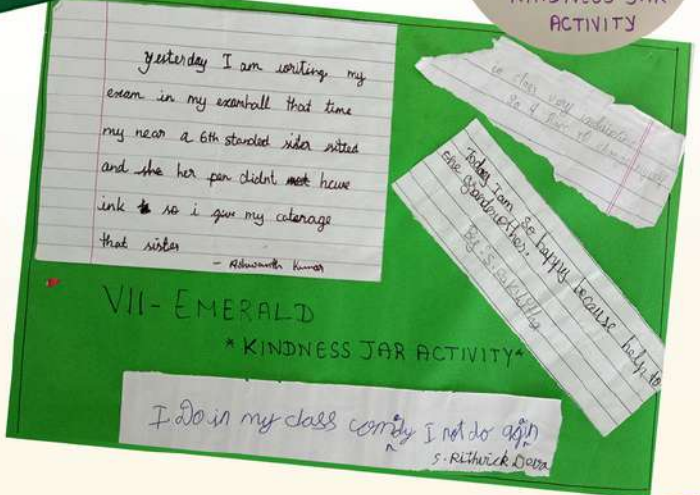 KINDNESS JAR
ACTIVITY
Yesterday I am writing my
exam in my examhall that time
my near a 6th standed sister sitted
and she her pen didnt not have
ink so i give my caterage
that sister
- Ashwanth Kumar
in class very
so I
Today I am so happy because help to
the grandmother.
By:-S.
VII- EMERALD
*KINDNESS JAR ACTIVITY*
I Do in my class comidy I not do agin
S. Rithwick Deva